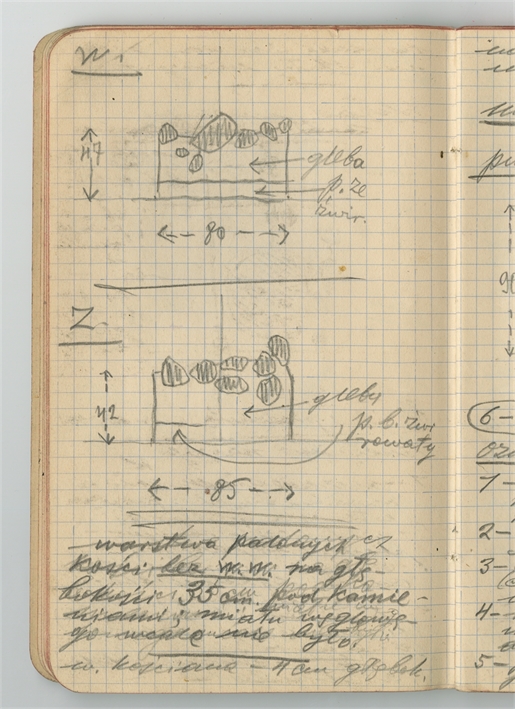 W.
47
gleba
p. ze
żwir.
80
Z.
42
gleba
p. b. żwi
rowaty
85
warstwa
kości bez w. w. na głę-
bokości 35 cm pod kamie-
niami, miału węglowe-
go wcale nie było.
w. kościana - 4 cm głębok.
90
6-
1-
2-
3-
4-
5-